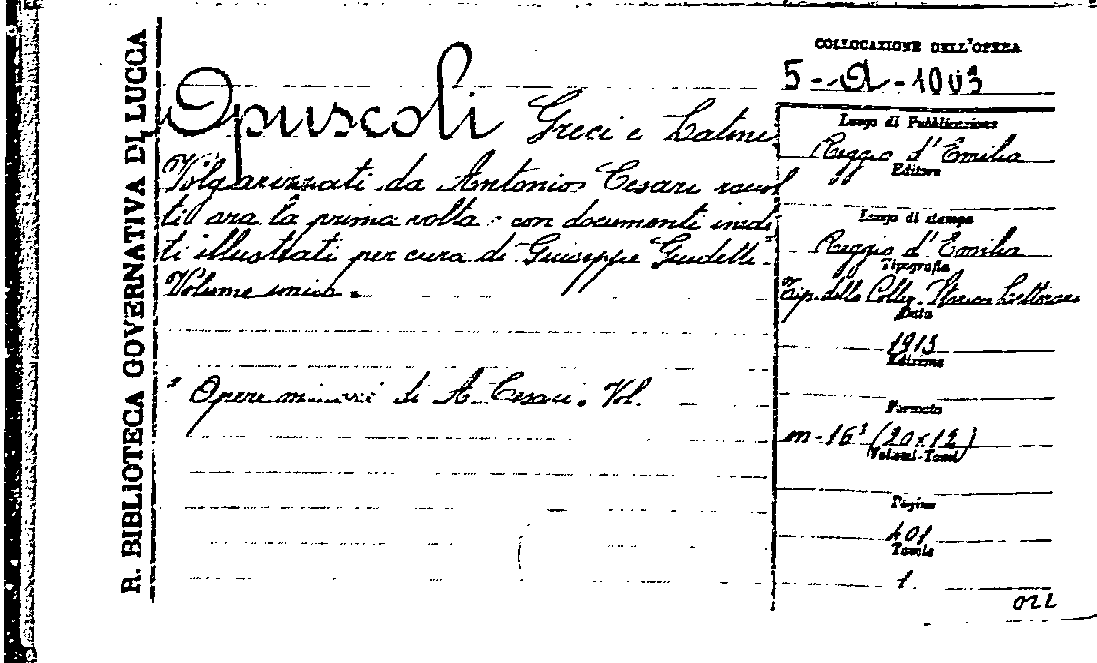 R. BIBLIOTECA GOVERNATIVA DI LUCCA
Opuscoli Greci e Latini
Volgarizzati da Antonio Cesari raccol
ti ora la prima volta: con documenti inedi
ti illustrati per cura di Giuseppe Guidetti.
Volume unico.
" Opere minori di A. Cesari. Vol.
COLLOCAZIONE DELL'OPERA
5-a-1003
Luogo di Pubblicazione
Reggio d'Emilia
Editore
Luogo di stampa
Reggio d'Emilia
Tipografia
Tip. della Collez. Letteraria
Data
1913
Edizione
Formato
in-16° (20x12)
Volumi-Tomi
Pagine
401
Tavole
1
022